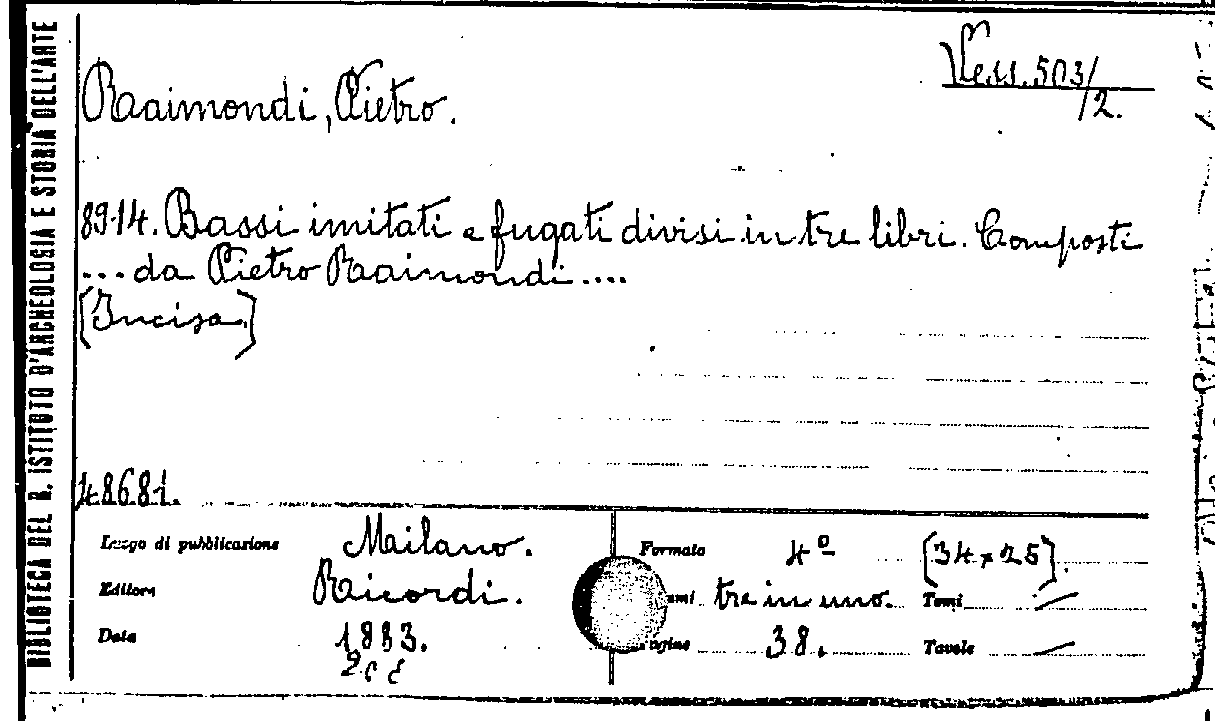 BIBLIOTECA DEL R. ISTITUTO D'ARCHEOLOGIA E STORIA DELL'ARTE
Vess. 503/2.
Raimondi, Pietro.
8914. Bassi imitati e fugati divisi in tre libri. Composti
... da Pietro Raimondi....
[Incisa.]
48681.
Luogo di pubblicazione Milano. Formato 4º [34 x 25].
Editore Ricordi. tre in uno. Tomi —
Data Pagine 38. Tavole —